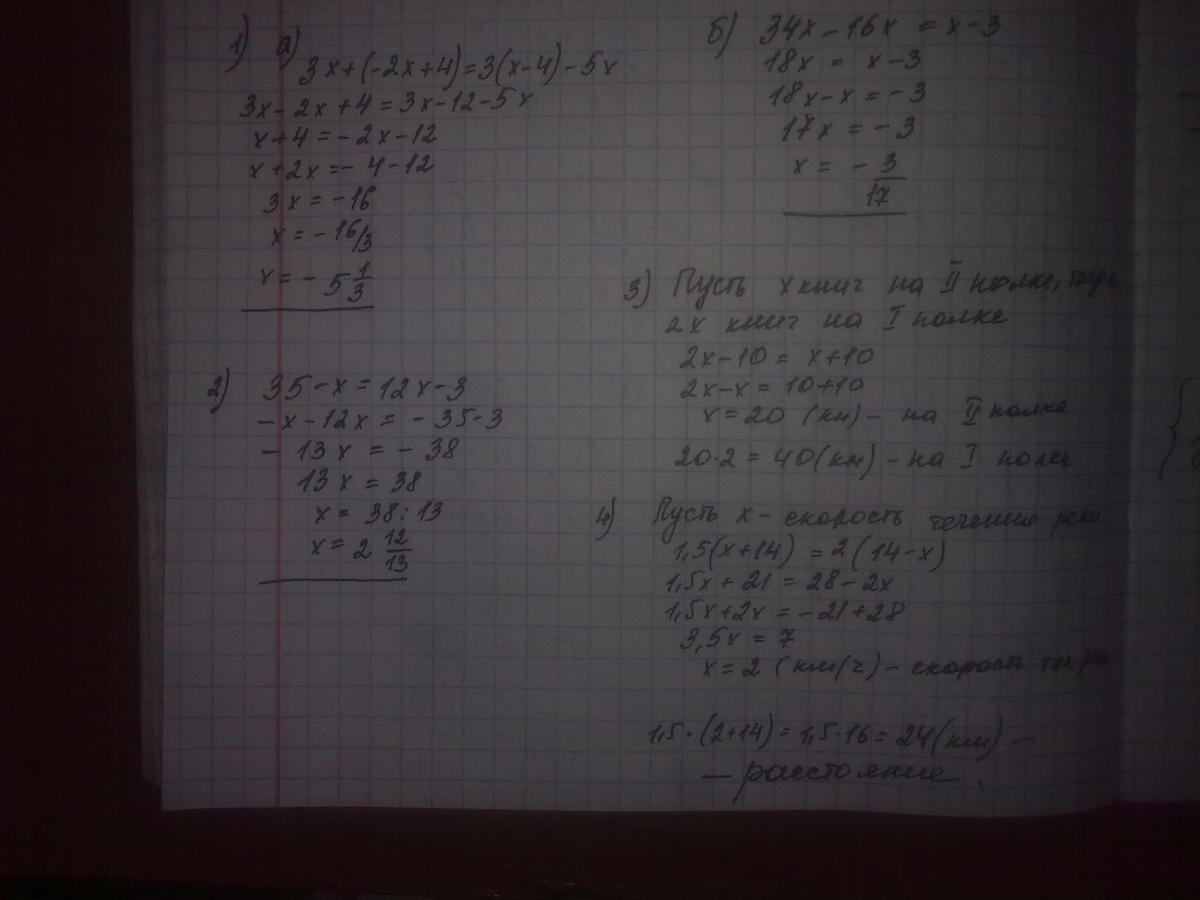 1) а)
3x+(-2x+4)=3(x-4)-5x
3x-2x+4=3x-12-5x
x+4=-2x-12
x+2x=-4-12
3x=-16
x=-16/3
x=-5 1/3
б) 34x-16x = x-3
18x = x-3
18x-x=-3
17x=-3
x = - 3/17
2) 35-x=12x-3
-x-12x = -35-3
- 13x = -38
13x = 38
x = 38:13
x = 2 12/13
3) Пусть x книг на II полке, тогда
2x книг на I полке
2x-10 = x+10
2x-x=10+10
x=20 (кн) - на II полке
20·2 = 40(кн) - на I полке
4) Пусть x - скорость течения реки
1,5(x+14) = 2(14-x)
1,5x+21=28-2x
1,5x+2x=-21+28
3,5x = 7
x=2 (км/ч) - скорость
1,5·(2+14)=1,5·16=24(км) -
- расстояние.